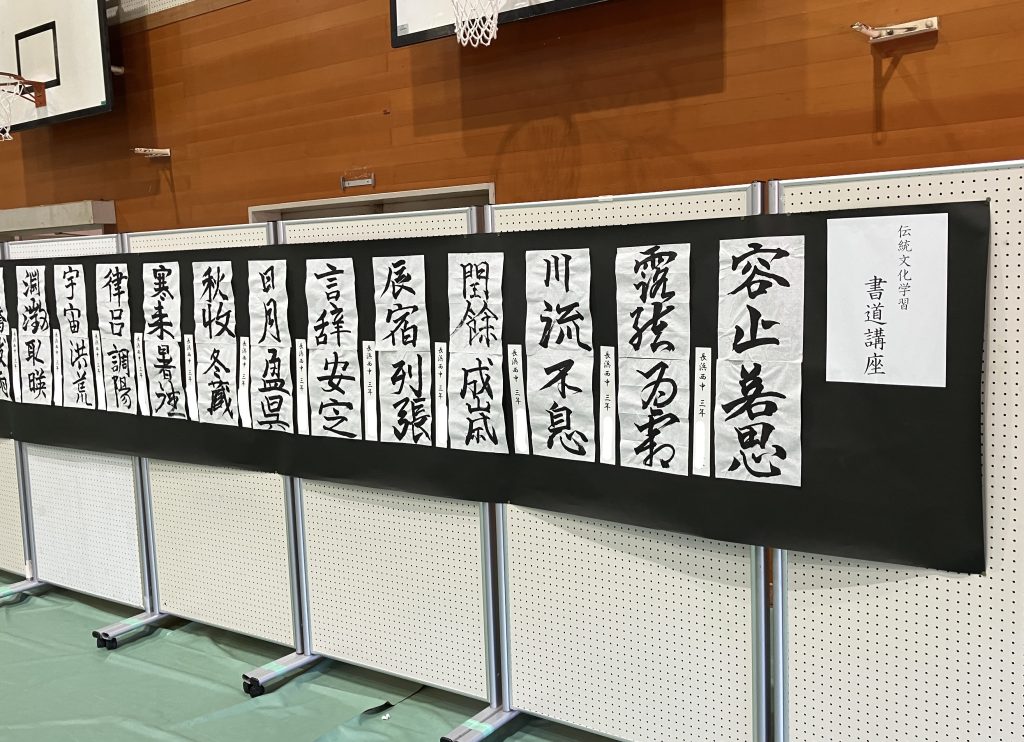 伝統文化学習
書道講座
容止若思
長浜西中 三年
露結為霜
長浜西中 三年
川流不息
長浜西中 三年
閏餘成歳
長浜西中 三年
辰宿列張
長浜西中 三年
言辞安定
長浜西中 三年
日月盈昃
長浜西中 三年
秋收冬蔵
長浜西中 三年
寒来暑往
長浜西中 三年
律呂調陽
長浜西中 三年
宇宙洪荒
淵澄取暎